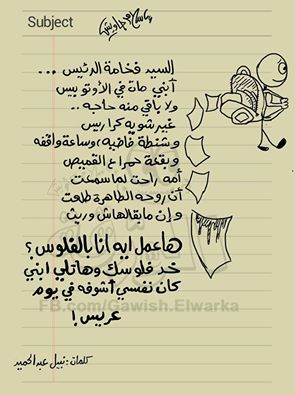 Subject
السيد فخامة الرئيس ...
آبني مات في الأوتوبيس
ولا باقي منه حاجه ..
غير شوية كراريس
وشنطة فاضيه وساعة واقفه
وبقعة حمرا ع القميص
أمه راحت لما سمعت
آن روحه الطاهرة طلعت
وإن مابقالهاش وريث
هاعمل ايه انا بالفلوس؟
خد فلوسك وهاتلي ابني
كان نفسي أشوفه في يوم
عريس!
FB.com/Gawish.Elwarka
كلمات: نبيل عبد الحميد